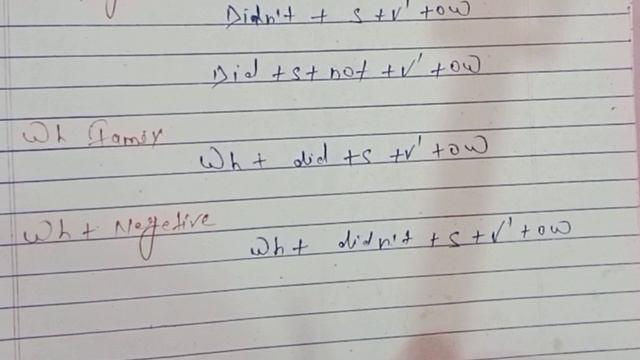 Didn't + s + v' + ow
Did + s + not + v' + ow
Wh Family
Wh + did + s + v' + ow
Wh + Negetive
Wh + didn't + s + v' + ow